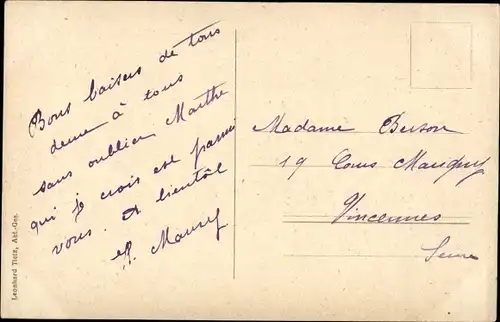 Bons baisers de tous
deux à tous
sans oublier Marthe
qui je crois est parmi
vous. A bientôt
Madame Berson
19 Cours Marigny
Vincennes
Seine
Leonhard Tietz, Akt.-Ges.